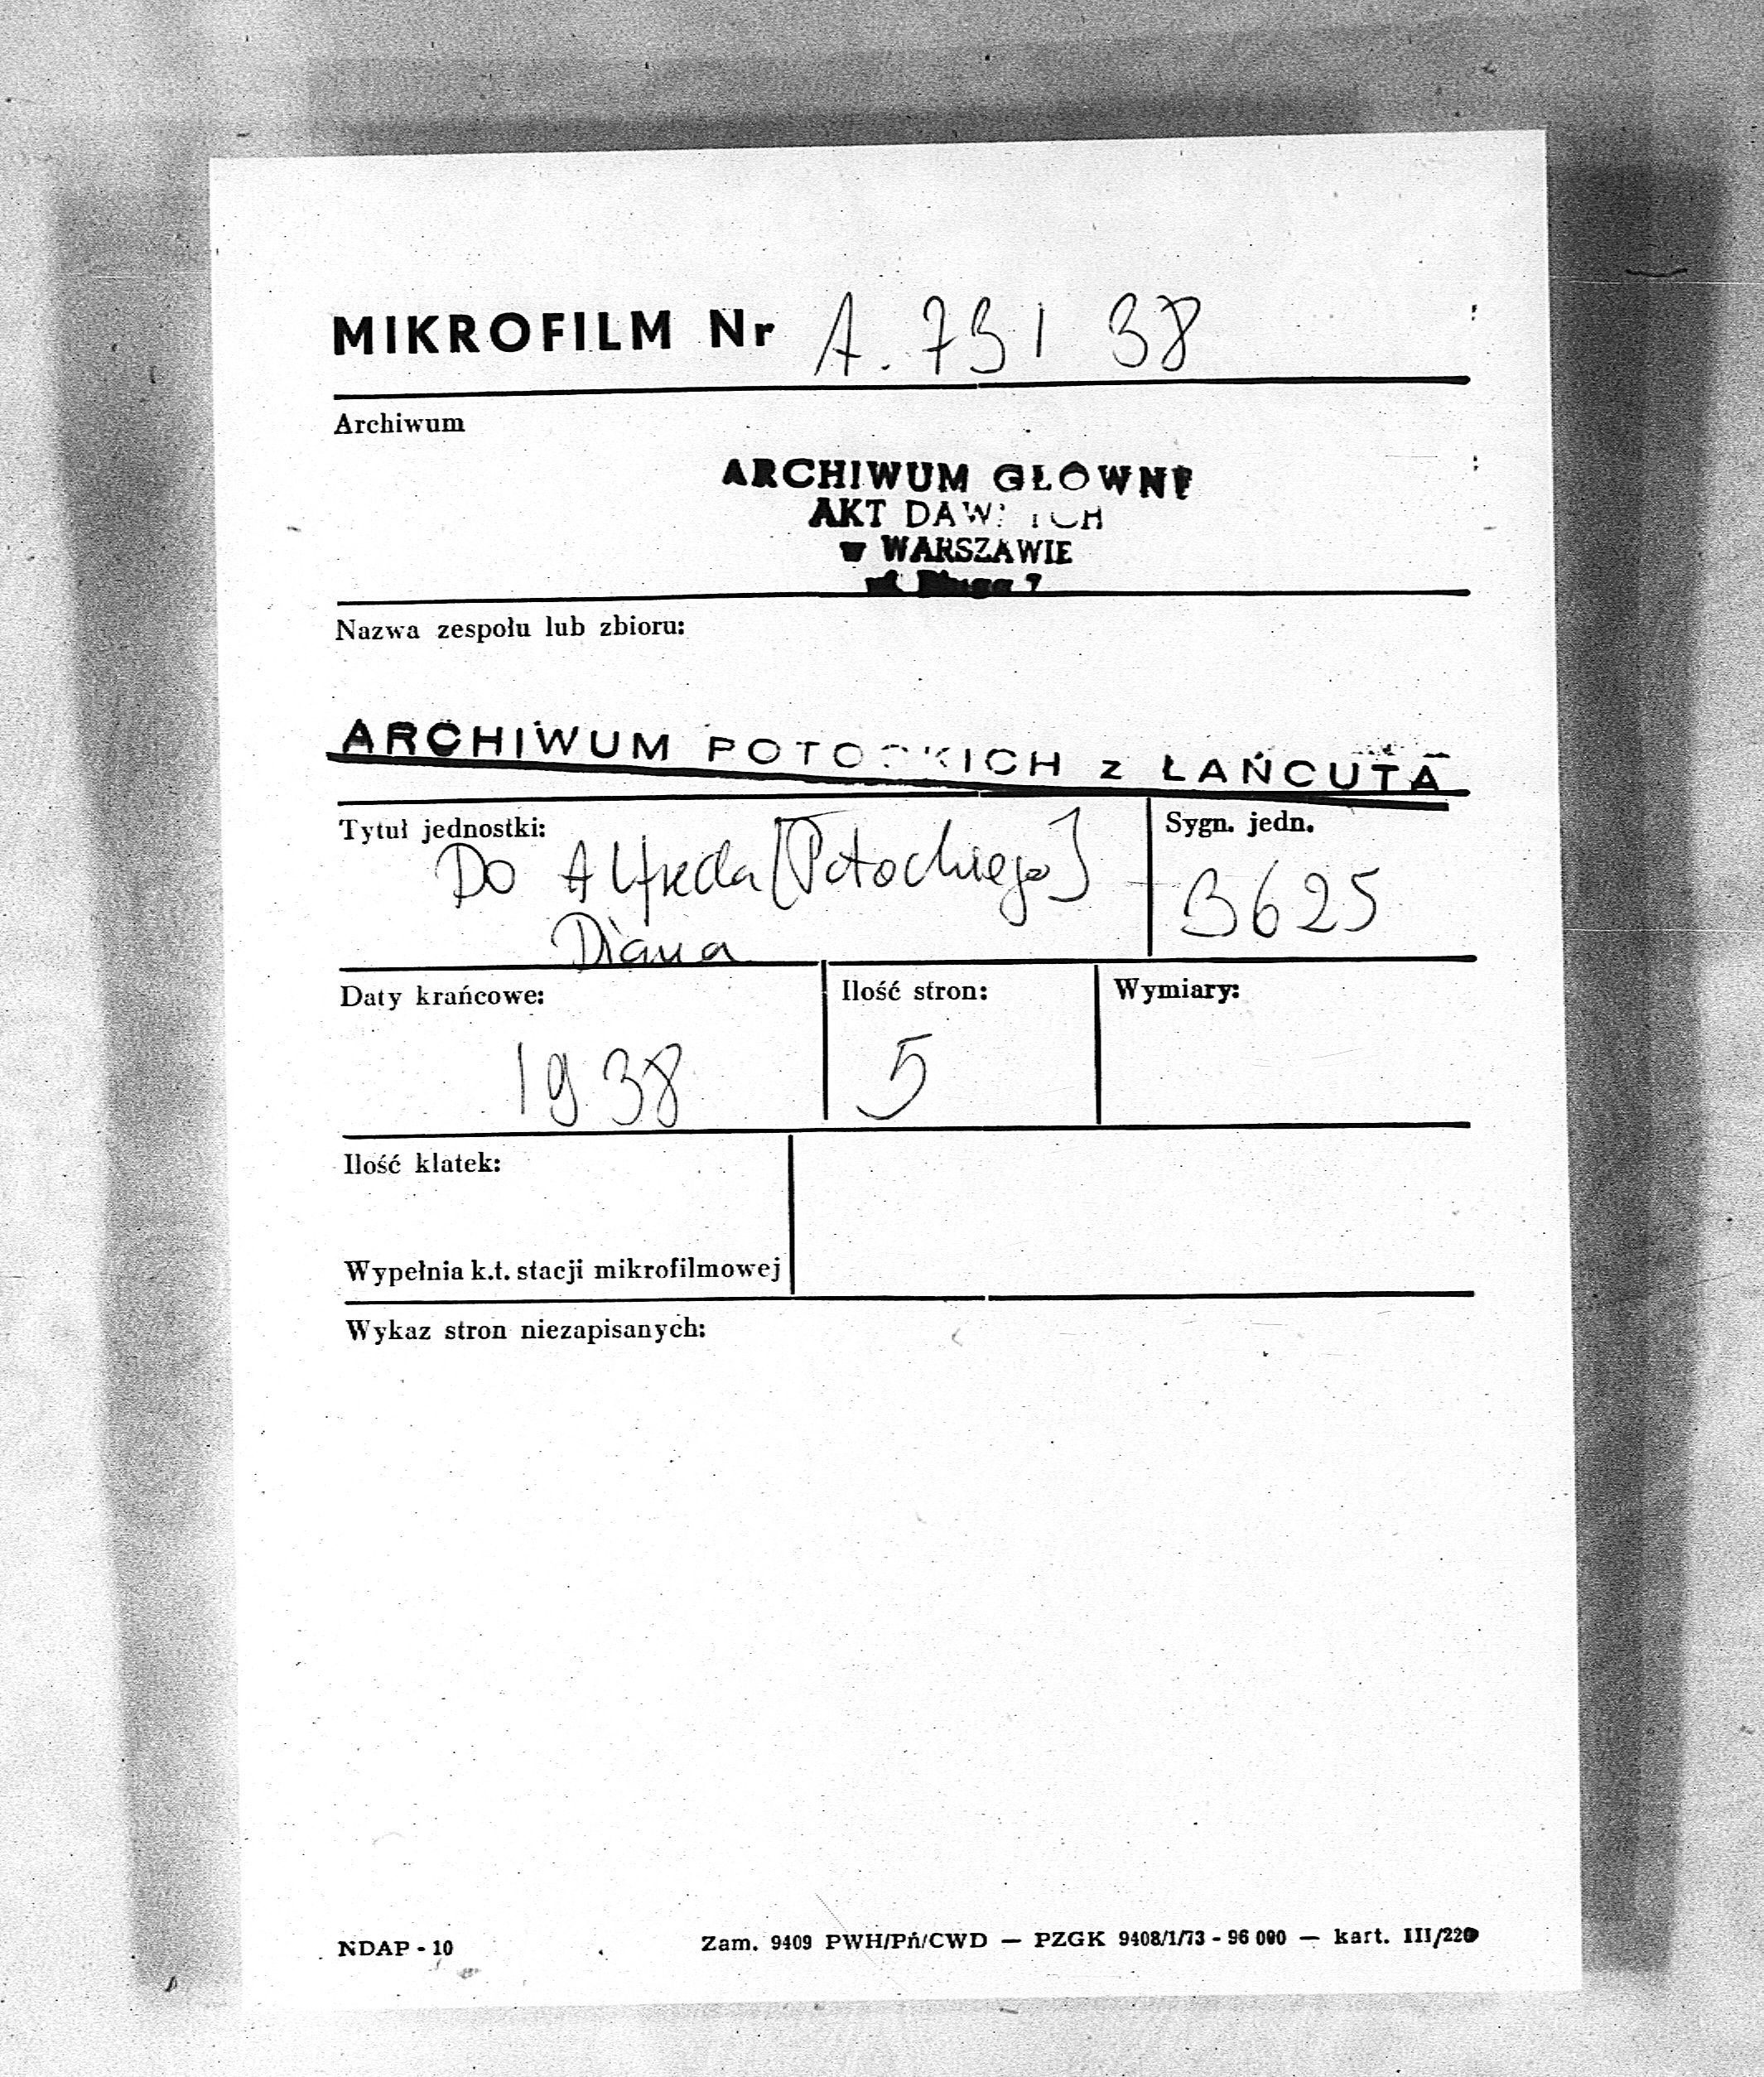 MIKROFILM Nr A. 731 38
Archiwum
ARCHIWUM GŁÓWNE
AKT DAWNYCH
w WARSZAWIE
ul. Długa 7
Nazwa zespołu lub zbioru:
ARCHIWUM POTOCKICH z ŁAŃCUTA
Tytuł jednostki:
Sygn. jedn.
Do Alfreda [Potockiego]
3625
Diana
Daty krańcowe:
Ilość stron:
Wymiary:
1938
5
Ilość klatek:
Wypełnia k.t. stacji mikrofilmowej
Wykaz stron niezapisanych:
NDAP - 10
Zam. 9409 PWH/Pń/CWD — PZGK 9408/1/73 - 96 000 — kart. III/220